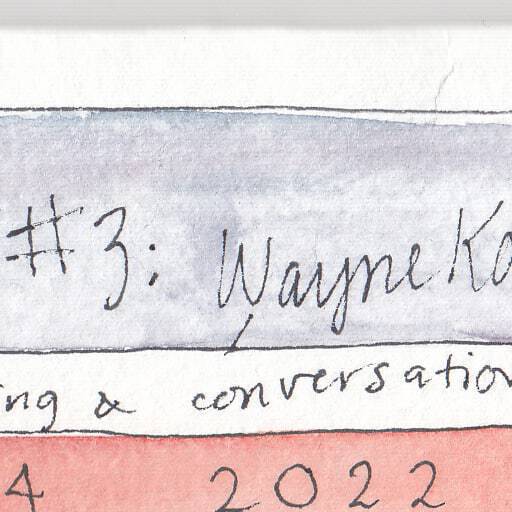 #3: Wayne Ko
ing & conversation
4 2022